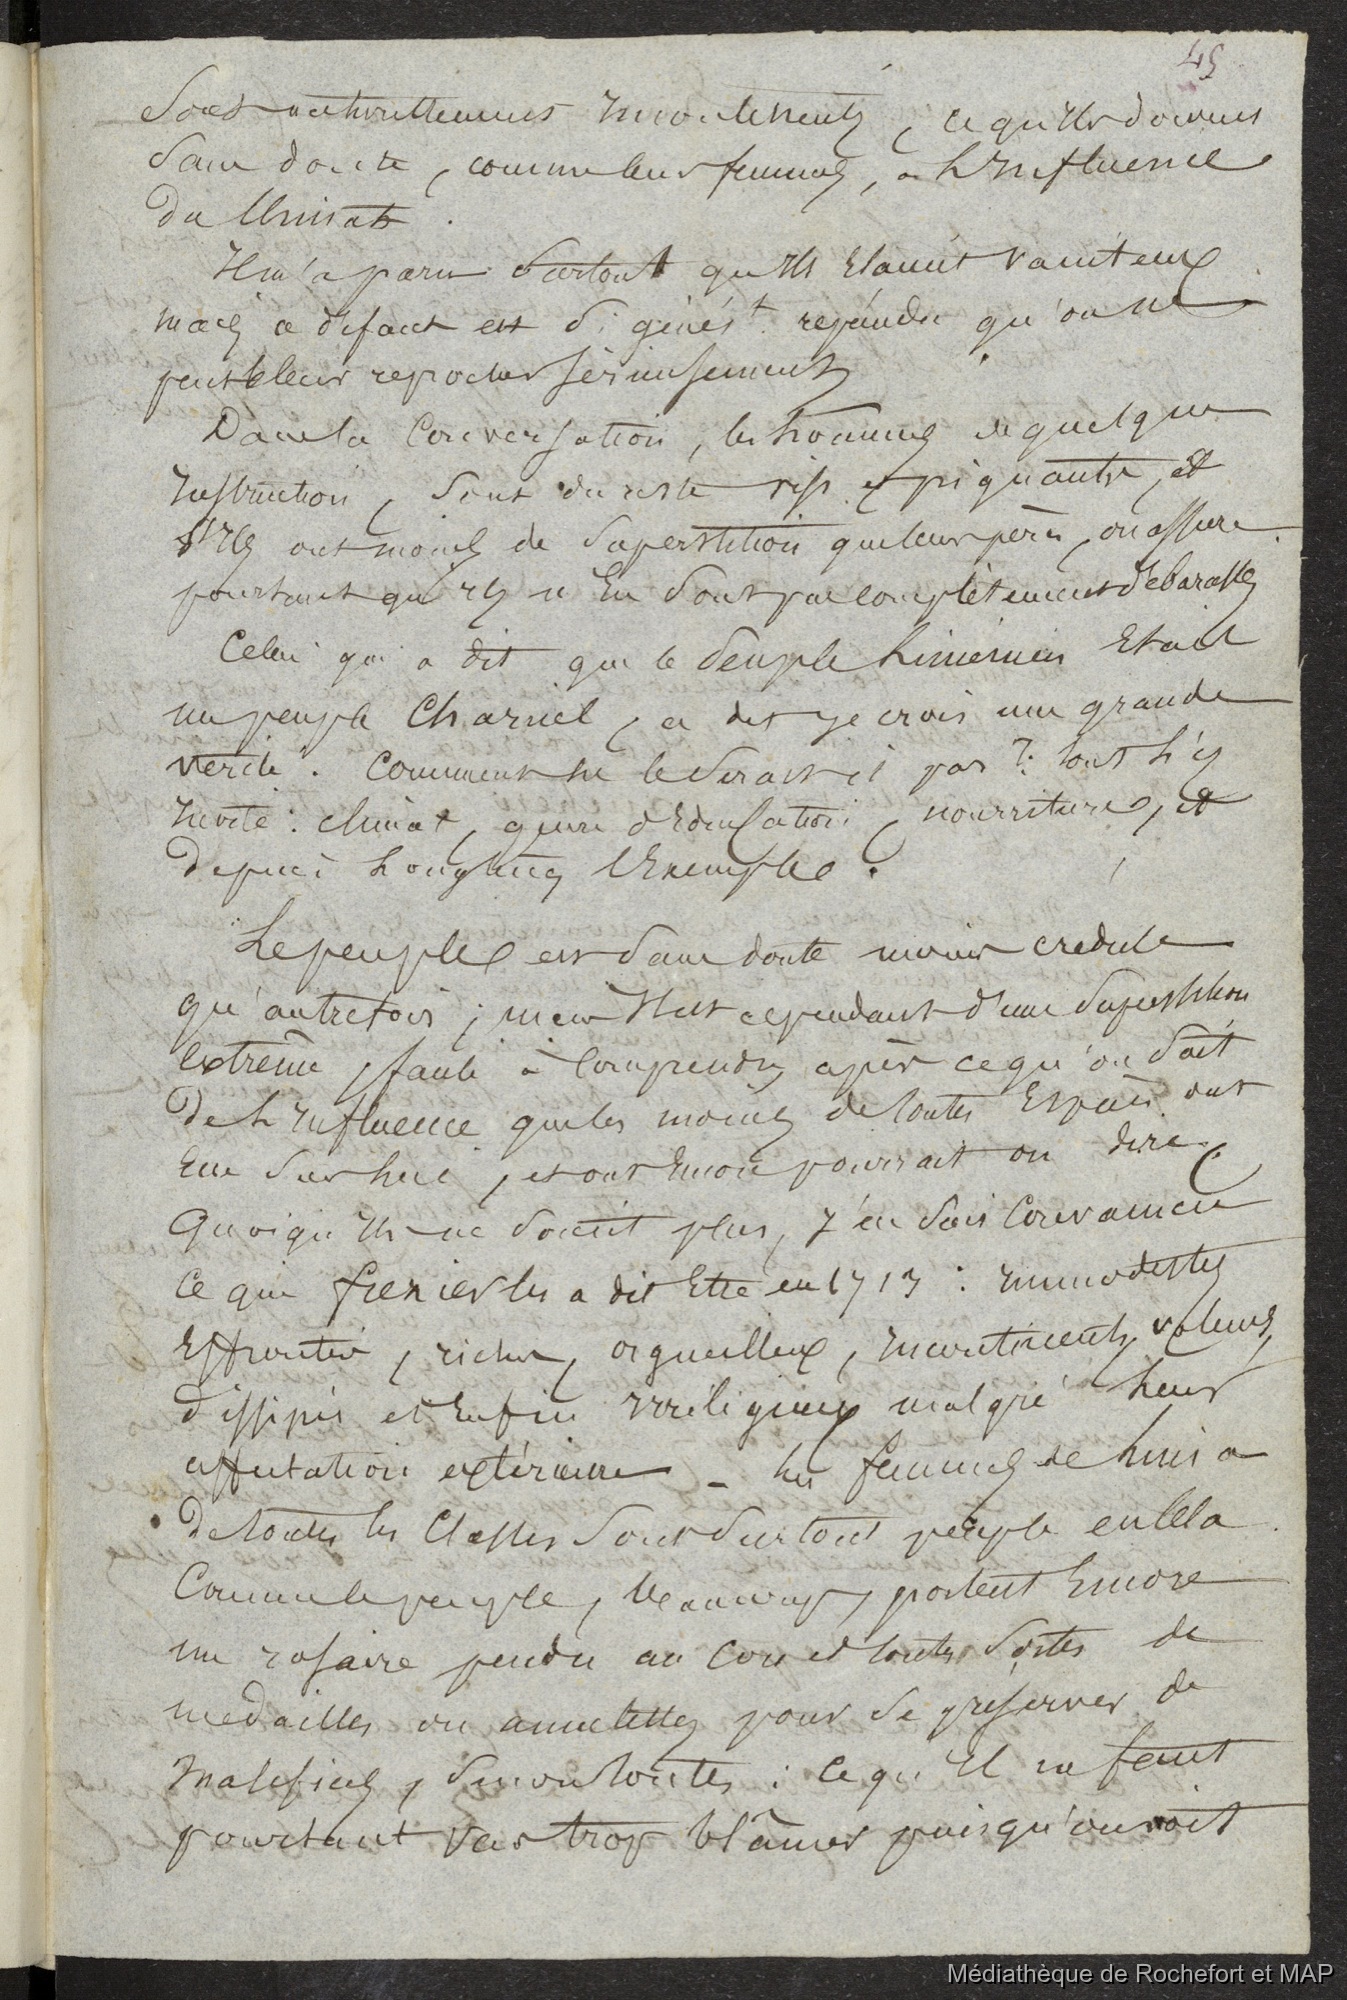 45
sont naturellement indolents, ce qu'ils doivent
sans doute, comme leurs femmes, à l'influence
du climat.
Il m'a paru surtout qu'ils étaient vaniteux
mais ce défaut est si génért. répandu qu'on ne
peut le leur reprocher sérieusement
Dans la conversation, les hommes de quelque
instruction, sont du reste vifs et piquants, et
s'ils ont moins de superstition que leurs pères, on assure
pourtant qu'ils n'en sont pas complètement débarassés
Celui qui a dit que le peuple Liménien était
un peuple charnel, a dit je crois une grande
vérité. Comment ne le serait il pas ? tout l'y
invite : climat, genre d'éducation, nourriture, et
depuis longtems l'exemple.
Le peuple est sans doute moins crédule
qu'autrefois ; mais il est cependant d'une superstition
extrême, facile à comprendre après ce qu'on sait
de l'influence que les moines de toutes espèces ont
eue sur lui, et ont encore pourrait on dire,
quoiqu'ils ne soient plus, j'en suis convaincu
ce que frézier les a dit être en 1713 : immodestes
effrontés, riches, orgueilleux, incontinents, voleurs,
dissipés et enfin irréligieux malgré leur
affectation extérieure _ les femmes de Lima
de toutes les classes sont surtout peuple en cela
comme le peuple, beaucoup portent encore
un rosaire pendu au cou et toutes sortes de
médailles ou amulettes pour se préserver de
maléfices, sinon toutes : ce qu'il ne faut
pourtant pas trop blâmer puisqu'on voit
Médiathèque de Rochefort et MAP